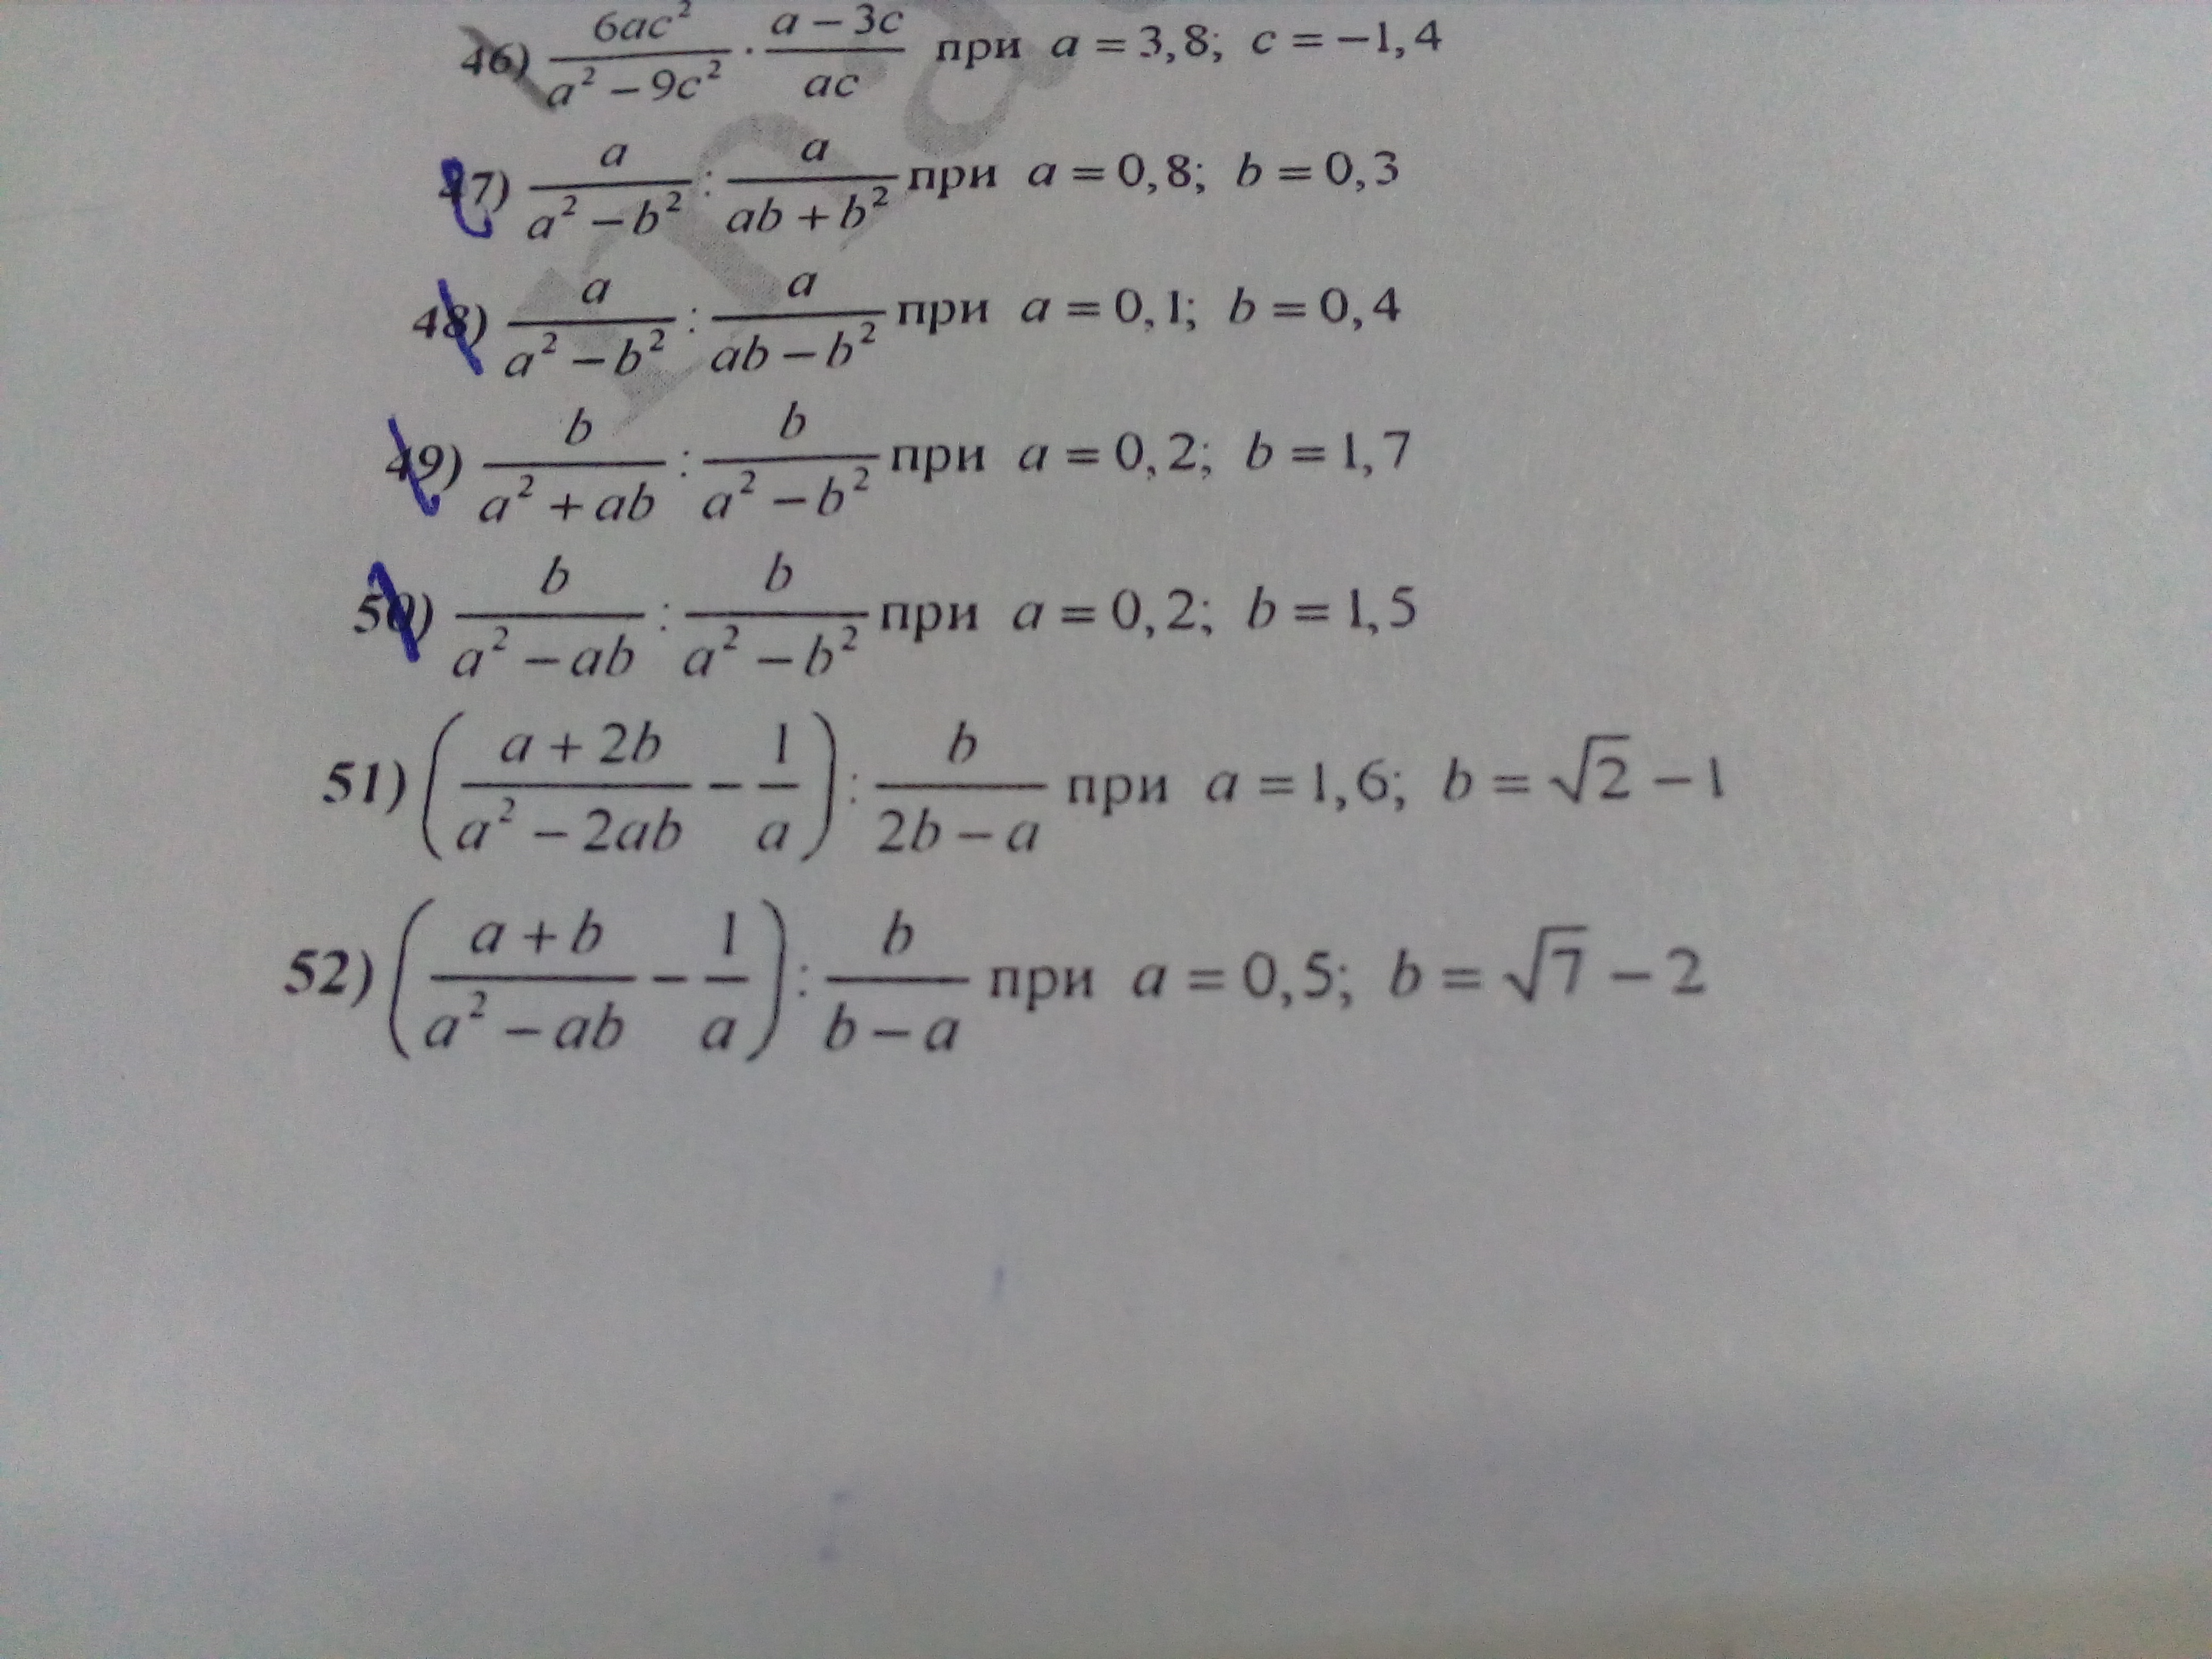 46) \frac{6ac^2}{a^2-9c^2} \cdot \frac{a-3c}{ac} при a = 3,8; c = -1,4
47) \frac{a}{a^2-b^2} : \frac{a}{ab+b^2} при a = 0,8; b = 0,3
48) \frac{a}{a^2-b^2} : \frac{a}{ab-b^2} при a = 0,1; b = 0,4
49) \frac{b}{a^2+ab} : \frac{b}{a^2-b^2} при a = 0,2; b = 1,7
50) \frac{b}{a^2-ab} : \frac{b}{a^2-b^2} при a = 0,2; b = 1,5
51) \left(\frac{a+2b}{a^2-2ab} - \frac{1}{a}\right) : \frac{b}{2b-a} при a = 1,6; b = \sqrt{2} - 1
52) \left(\frac{a+b}{a^2-ab} - \frac{1}{a}\right) : \frac{b}{b-a} при a = 0,5; b = \sqrt{7} - 2